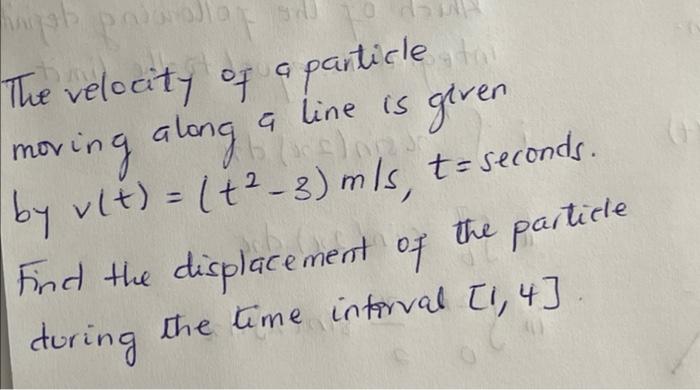 The velocity of a particle
moving along a line is given
by v(t) = (t² - 3) m/s, t = seconds.
Find the displacement of the particle
during the time interval [1, 4].